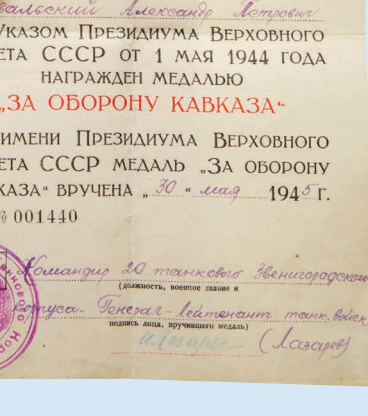 вальский Александр Петрович
Указом Президиума Верховного
ета СССР от 1 мая 1944 года
награжден медалью
„ЗА ОБОРОНУ КАВКАЗА“
имени Президиума Верховного
ета СССР медаль „За оборону
каза“ вручена „30“ мая 1945 г.
№ 001440
Командир 20 танкового Звенигородского
(должность, военное звание и
корпуса - Генерал-Лейтенант танк. войск
подпись лица, вручившего медаль)
(Лазарев)